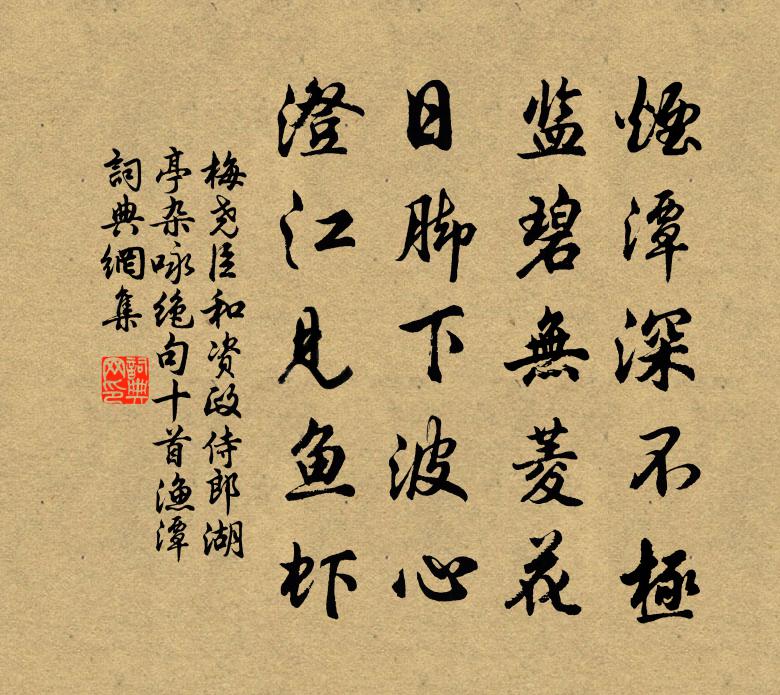 烟潭深不極
监碧無菱花
日脚下波心
澄江見鱼虾
梅尧臣和资政侍郎湖
亭杂咏绝句十首渔潭
詞典網集
詞典
网印